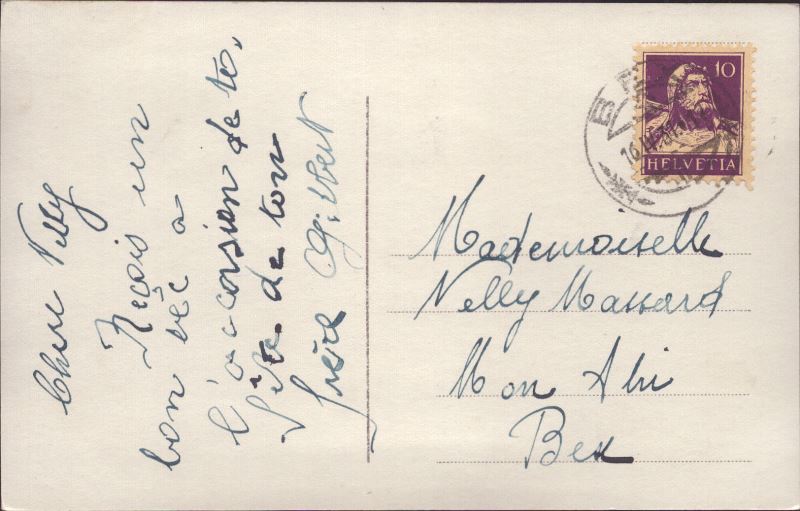 Chère Nelly
Reçois un
bon bec a
l'occasion de ta
fête de ton
frère Gilbert
10
HELVETIA
Mademoiselle
Nelly Massard
Mon Abri
Bex